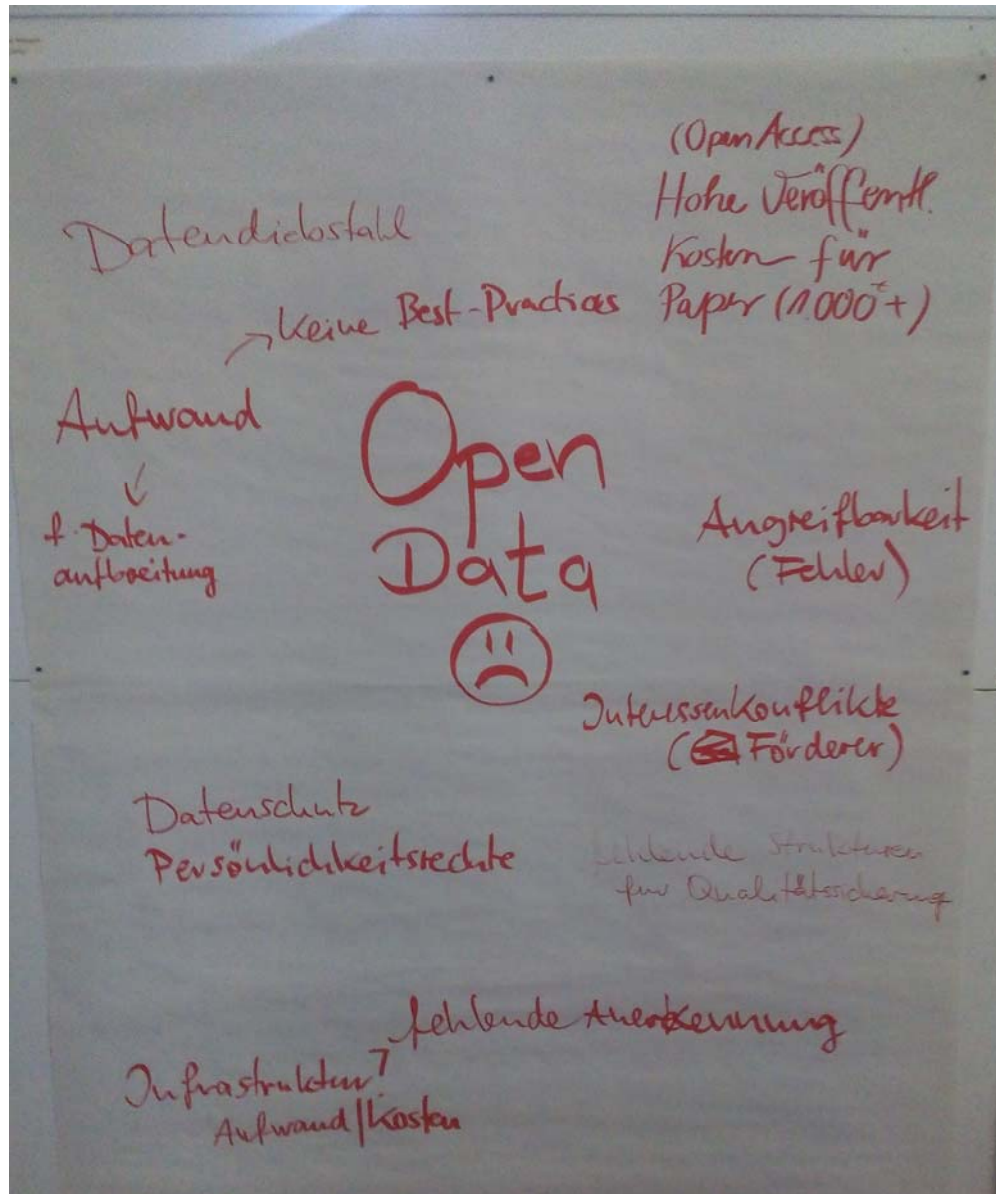 (Open Access)
Hohe Veröffentl.
Kosten für
Paper (1.000€+)
Datendiebstahl
Keine Best-Practices
Aufwand
f. Daten-
aufbereitung
Open
Data
Angreifbarkeit
(Fehler)
Interessenkonflikte
(Förderer)
Datenschutz
Persönlichkeitsrechte
fehlende Strukturen
für Qualitätssicherung
fehlende Anerkennung
Infrastruktur?
Aufwand/Kosten